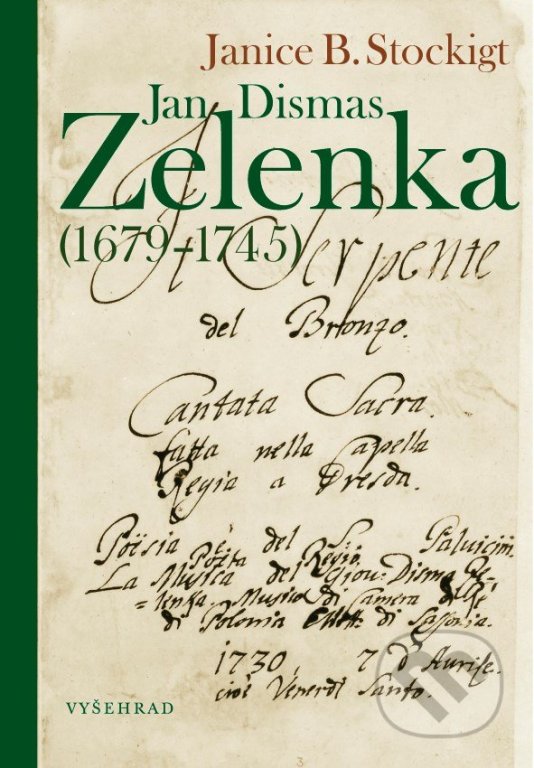 Janice B. Stockigt
Jan Dismas
Zelenka
(1679–1745)
Il Serpente
del Bronzo.
Cantata Sacra.
fatta nella Capella
Regia a Dresda.
Poësia è del S.
Poëta Regio.
La Musica del Giov: Disma Ze-
=lenka. Musico di Camera
di Polonia di Sassonia.
1730, 7 d'Aprile.
cioè Venerdì Santo.
VYŠEHRAD
3